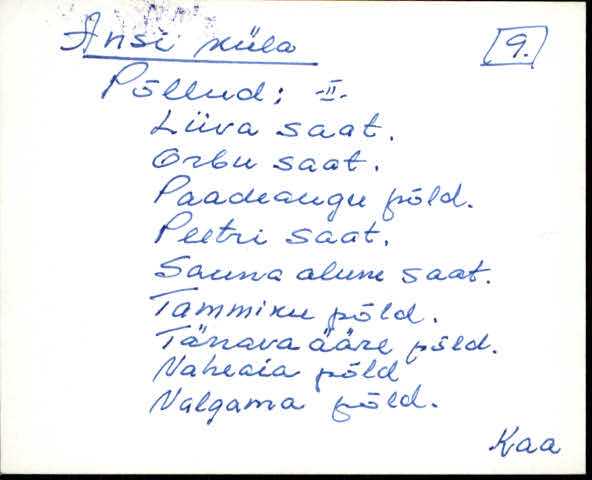 Ansi küla
9.
Põllud: -II-
Liiva saat.
Orbu saat.
Paadeaugu põld.
Peetri saat.
Sauna alune saat.
Tammiku põld.
Tänava ääre põld.
Vaheaia põld
Valgama põld.
Kaa